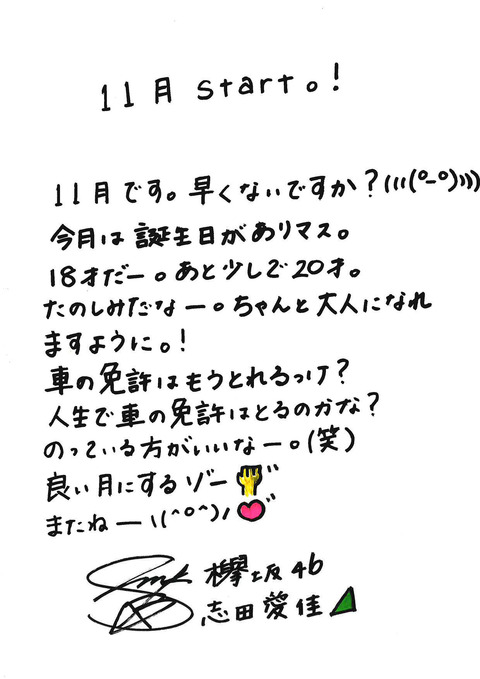 11月 start。!
11月です。早くないですか?(((°-°)))
今月は誕生日がありマス。
18才だー。あと少しで20才。
たのしみだなー。ちゃんと大人になれ
ますように。!
車の免許はもうとれるっけ?
人生で車の免許はとるのかな?
のっている方がいいなー。(笑)
良い月にするゾー
またねー \(^o^)/
欅坂46
志田愛佳